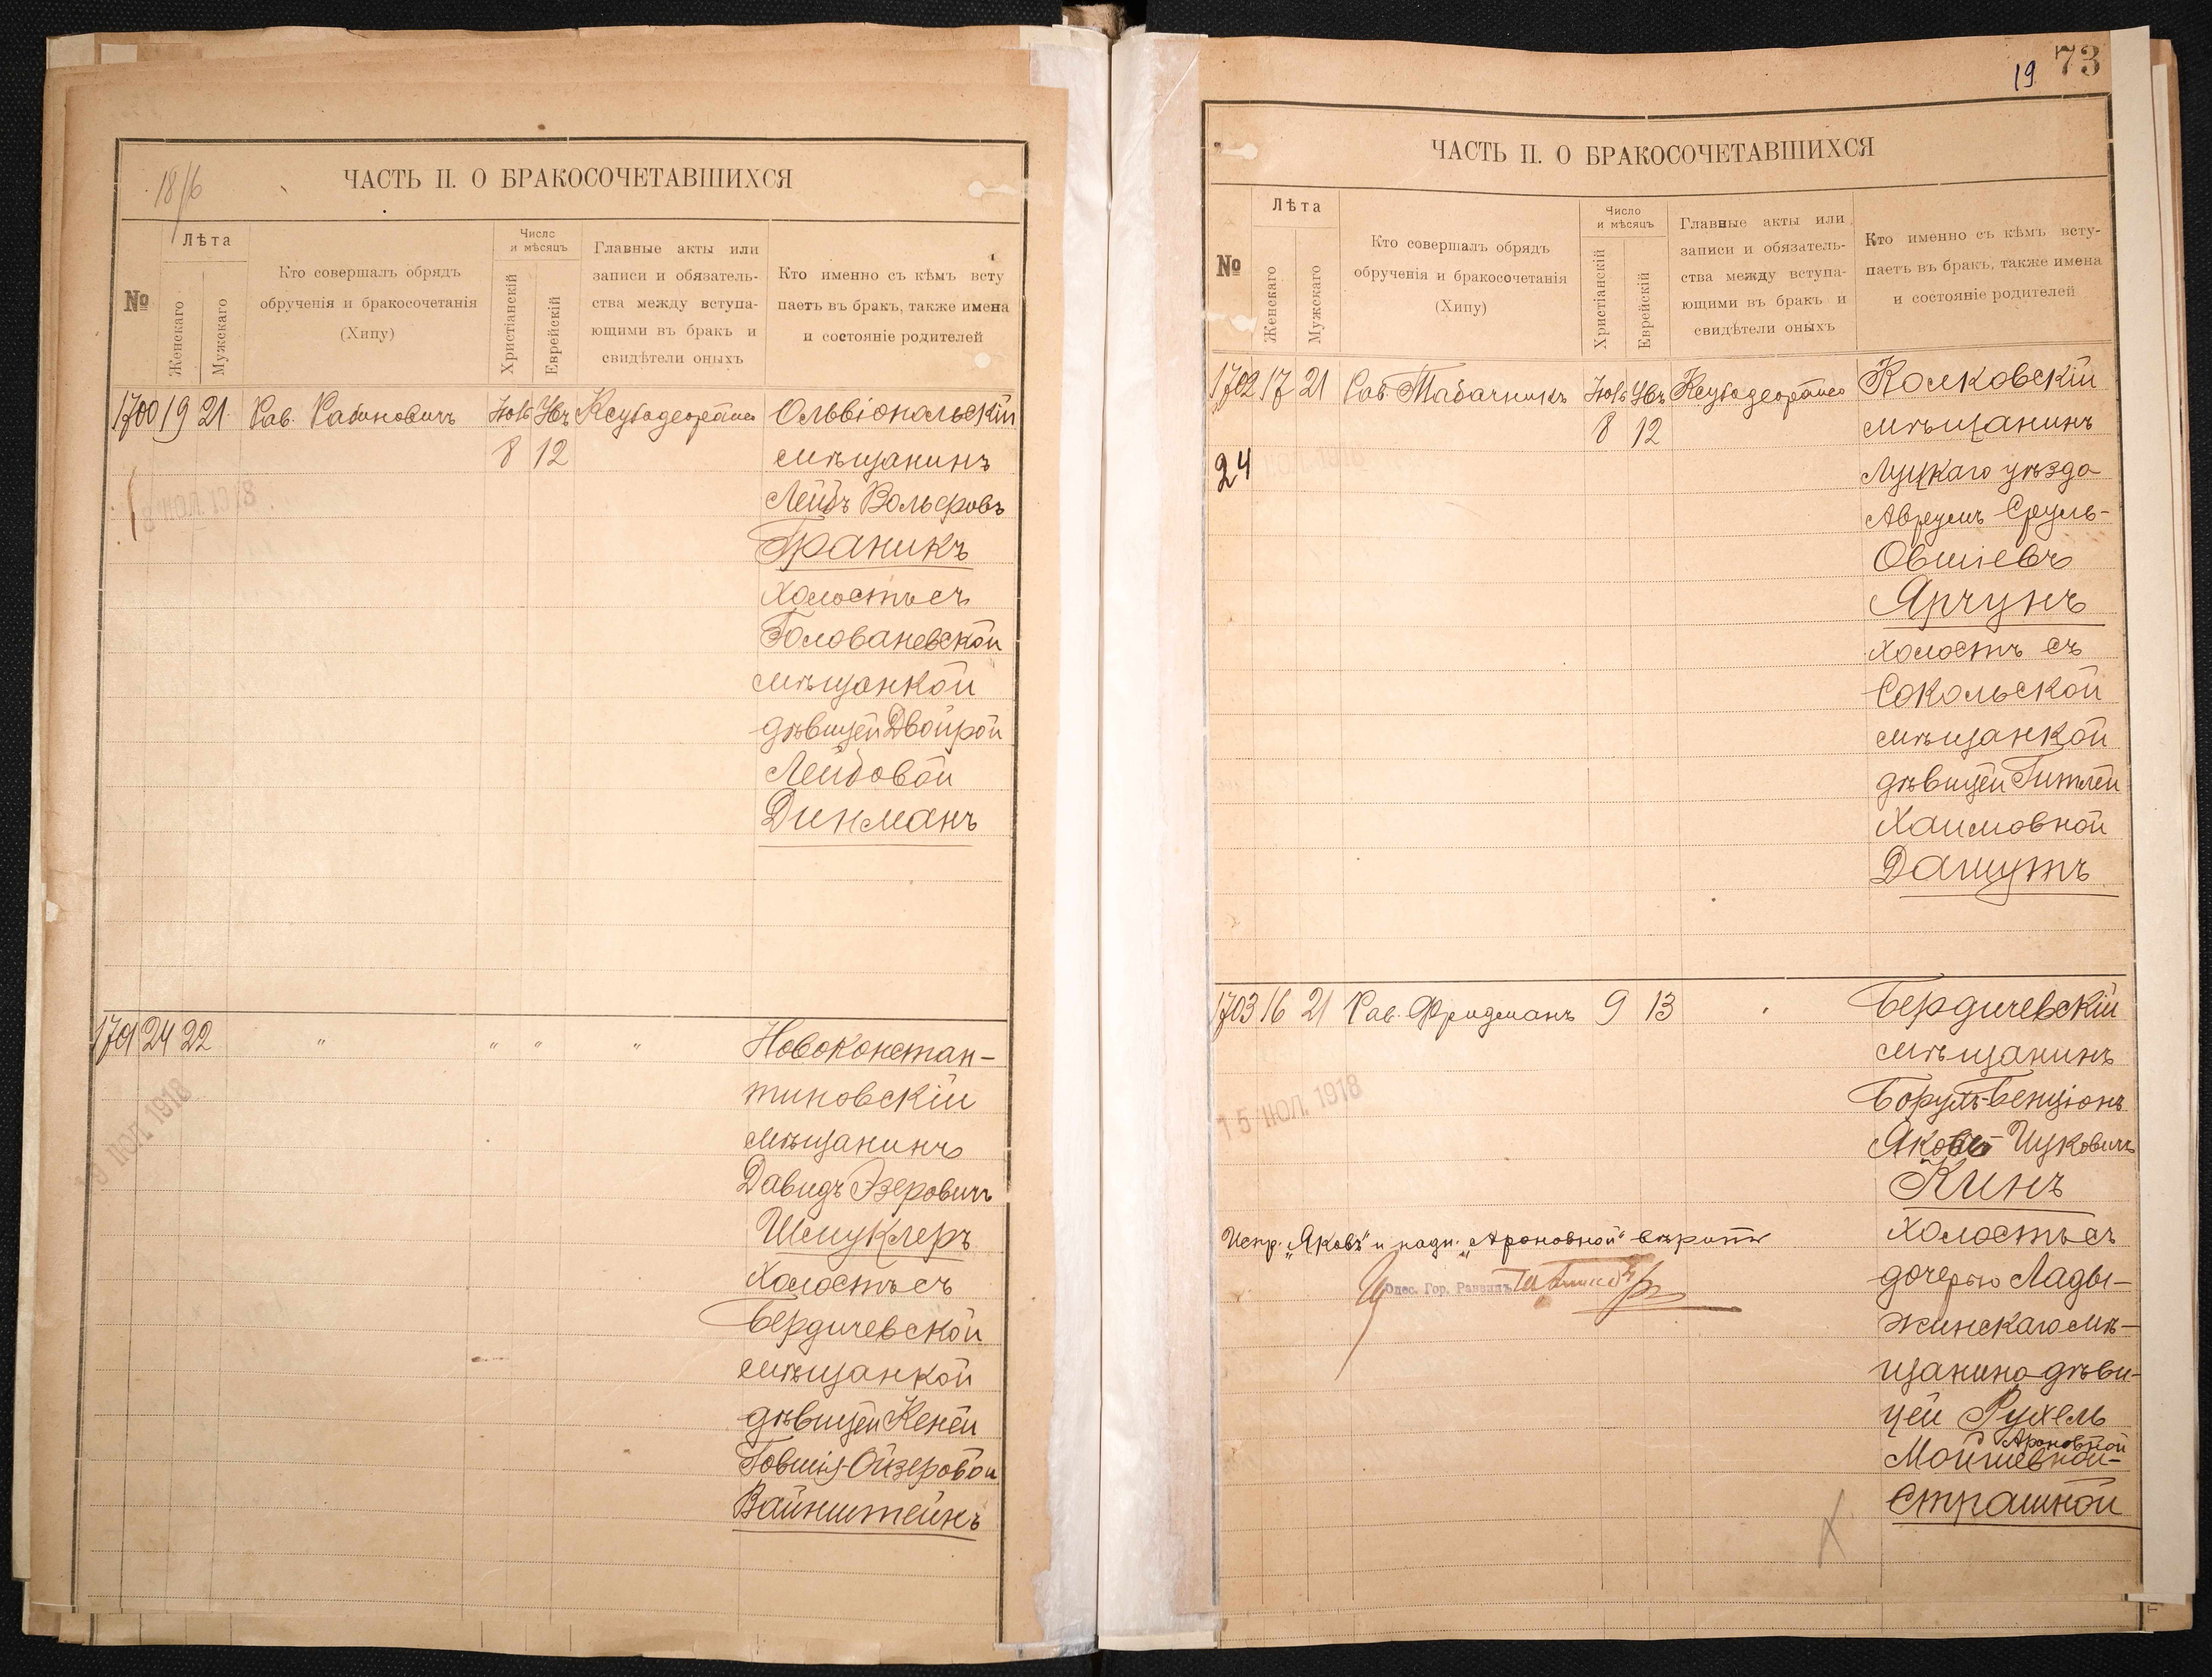 18/6
ЧАСТЬ II. О БРАКОСОЧЕТАВШИХСЯ
№
Лѣта
Женскаго
Мужскаго
Кто совершалъ обрядъ
обрученія и бракосочетанія
(Хипу)
Число
и мѣсяцъ
Христіанскій
Еврейскій
Главные акты или
записи и обязатель-
ства между вступа-
ющими въ бракъ и
свидѣтели оныхъ
Кто именно съ кѣмъ всту
паетъ въ бракъ, также имена
и состояніе родителей
1700 19 21 Рав. Рабиновичъ Ольвіопольскій
8 12 мѣщанинъ
8 ІЮЛ. 1918
Лейбъ Вольфовъ
Граникъ
холостъ съ
Голованевской
мѣщанкой
дѣвицей Двойрой
Лейбовой
Динманъ
1701 24 22 " " " " Новоконстан-
тиновскій
19 ІЮЛ. 1918
мѣщанинъ
Давидъ Эзеровичъ
Шмуклеръ
Холостъ съ
Бердичевской
мѣщанкой
дѣвицей Кеней
Говшія-Ойзеровой
Вайнштейнъ
19 73
ЧАСТЬ II. О БРАКОСОЧЕТАВШИХСЯ
№
Лѣта
Женскаго
Мужскаго
Кто совершалъ обрядъ
обрученія и бракосочетанія
(Хипу)
Число
и мѣсяцъ
Христіанскій
Еврейскій
Главные акты или
записи и обязатель-
ства между вступа-
ющими въ бракъ и
свидѣтели оныхъ
Кто именно съ кѣмъ всту-
паетъ въ бракъ, также имена
и состояніе родителей
1702 17 21 Рав. Табачникъ Колковскій
8 12 мѣщанинъ
24 Луцкаго уѣзда
Аврумъ Сруль-
Овшіевъ
Ярчунъ
холостъ съ
Сокольской
мѣщанкой
дѣвицей Гитлей
Хаимовной
Дашутъ
1703 16 21 Рав. Фридманъ 9 13 " Бердичевскій
мѣщанинъ
15 ІЮЛ. 1918
Борухъ-Бенціонъ
Яковъ Ицковичъ
Кинъ
Испр. „Яковъ" и надп. „Ароновной" вѣрить
холостъ съ
Одес. Гор. Раввинъ
дочерью Лады-
жинскаго мѣ-
щанина дѣви-
цей Рухель
Ароновной
Мойшевной-
Страшной